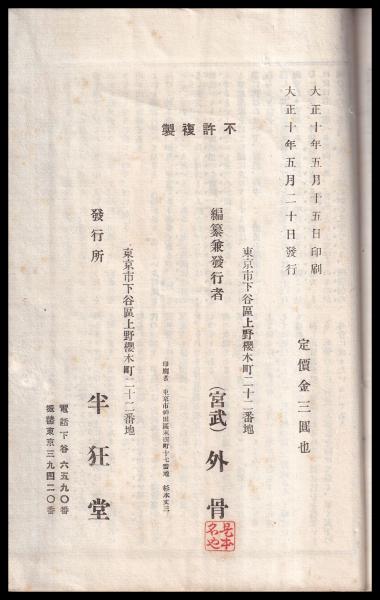 大正十年五月十五日印刷
大正十年五月二十日發行
定價金三圓也
不許複製
東京市下谷區上野櫻木町二十二番地
編纂兼發行者
(宮武)外骨
印刷者 東京市神田區
町十七番地
東京市下谷區上野櫻木町二十二番地
發行所
半狂堂
電話下谷六五九〇番
振替東京三九四二〇番